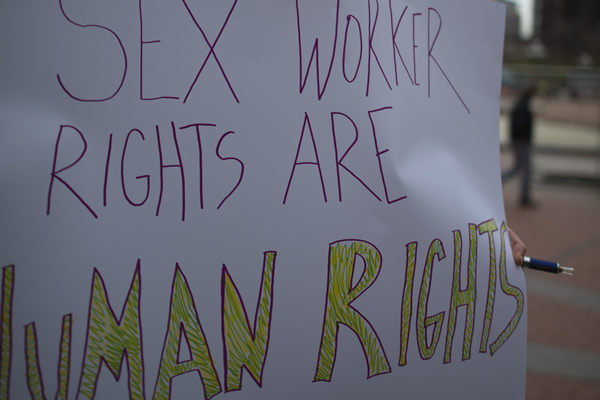 SEX WORKER
RIGHTS ARE
HUMAN RIGHTS